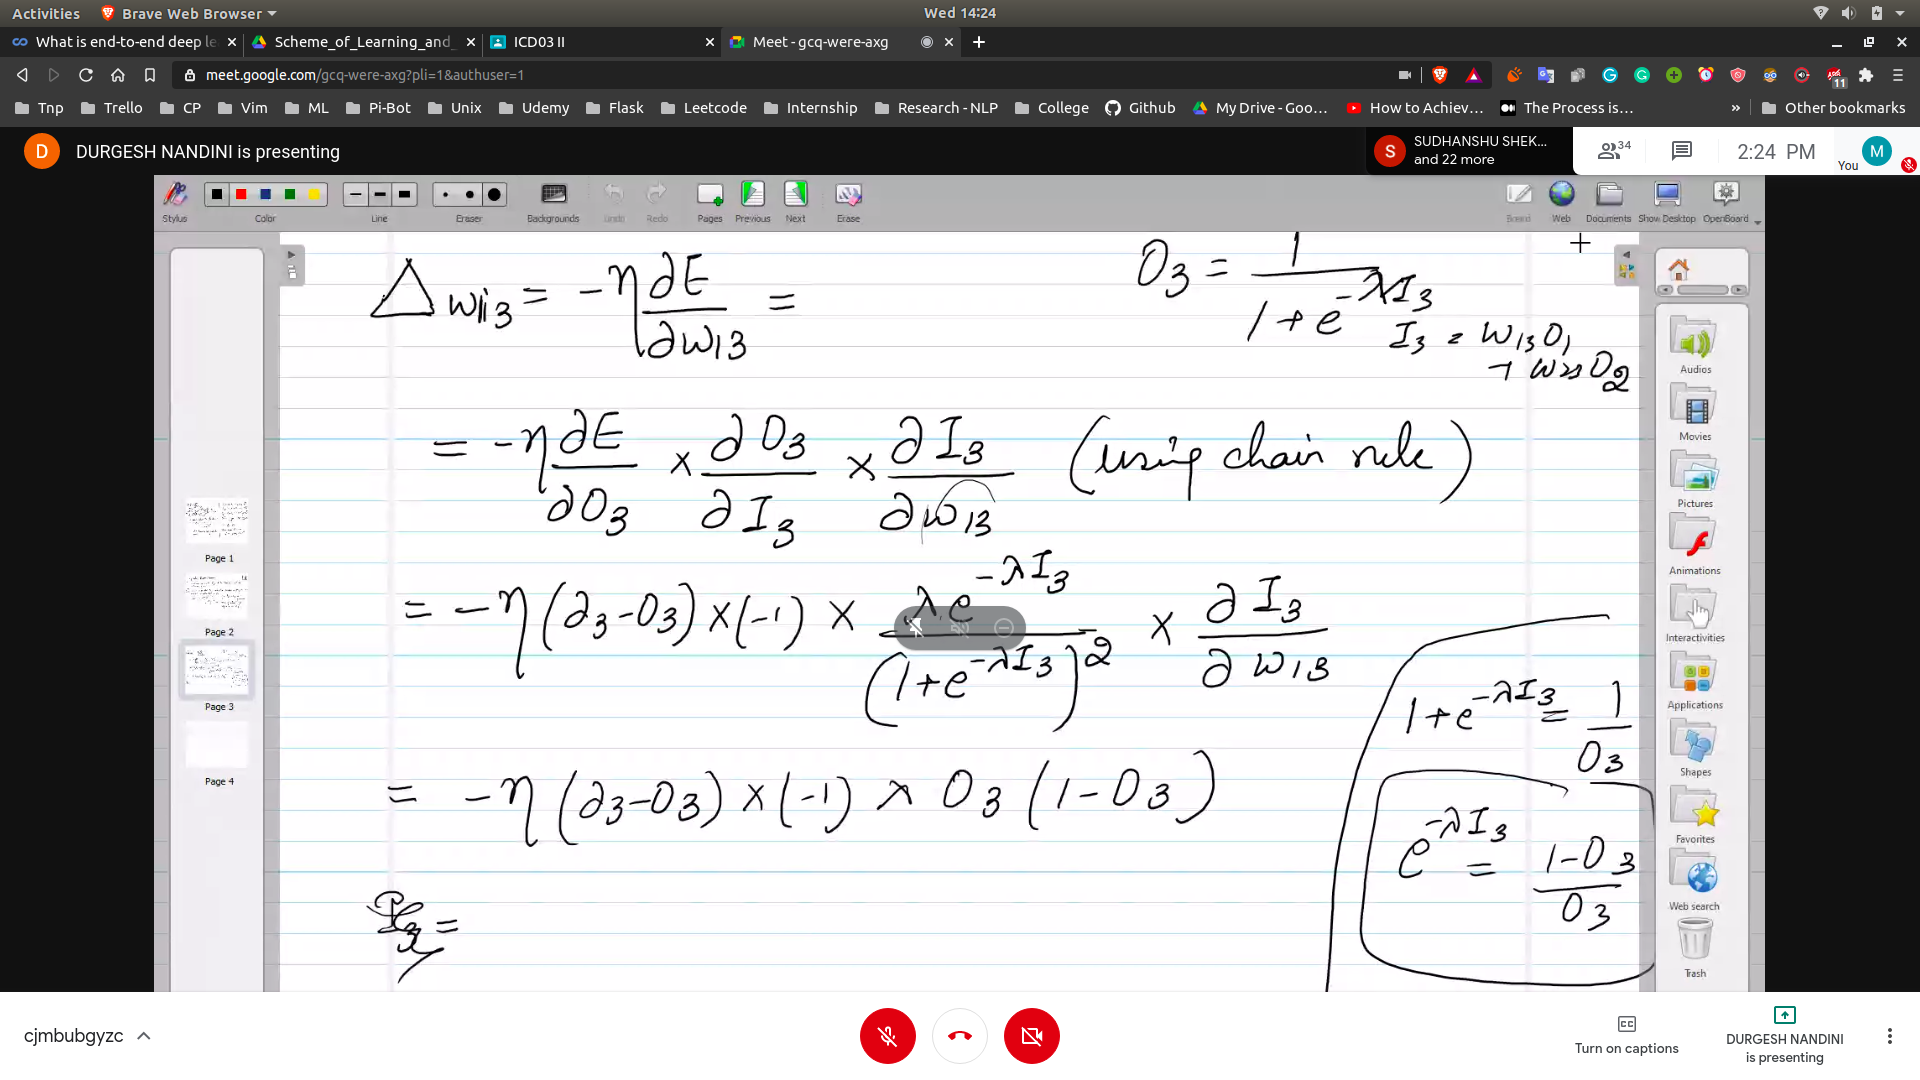 Activities Brave Web Browser Wed 14:24
What is end-to-end deep le Scheme_of_Learning_and_ ICD03 II Meet - gcq-were-axg
meet.google.com/gcq-were-axg?pli=1&authuser=1
11
Tnp Trello CP Vim ML Pi-Bot Unix Udemy Flask Leetcode Internship Research - NLP College Github My Drive - Goo... How to Achiev... The Process is... » Other bookmarks
D DURGESH NANDINI is presenting
S SUDHANSHU SHEK...
and 22 more
34
2:24 PM
You M
Stylus Color Line Eraser Backgrounds Undo Redo Pages Previous Next Erase Board Web Documents Show Desktop OpenBoard
Δw13 = -η ∂E/∂w13 =
O3 = 1/(1+e^-λI3)
I3 = w13O1
+ w23O2
= -η ∂E/∂O3 × ∂O3/∂I3 × ∂I3/∂w13 (using chain rule)
= -η(∂3-O3)×(-1) × λe^-λI3/(1+e^-λI3)^2 × ∂I3/∂w13
1+e^-λI3 = 1/O3
= -η(∂3-O3)×(-1) λ O3(1-O3)
e^-λI3 = (1-O3)/O3
Page 1
Page 2
Page 3
Page 4
Audios
Movies
Pictures
Animations
Interactivities
Applications
Shapes
Favorites
Web search
Trash
cjmbubgyzc
Turn on captions
DURGESH NANDINI
is presenting